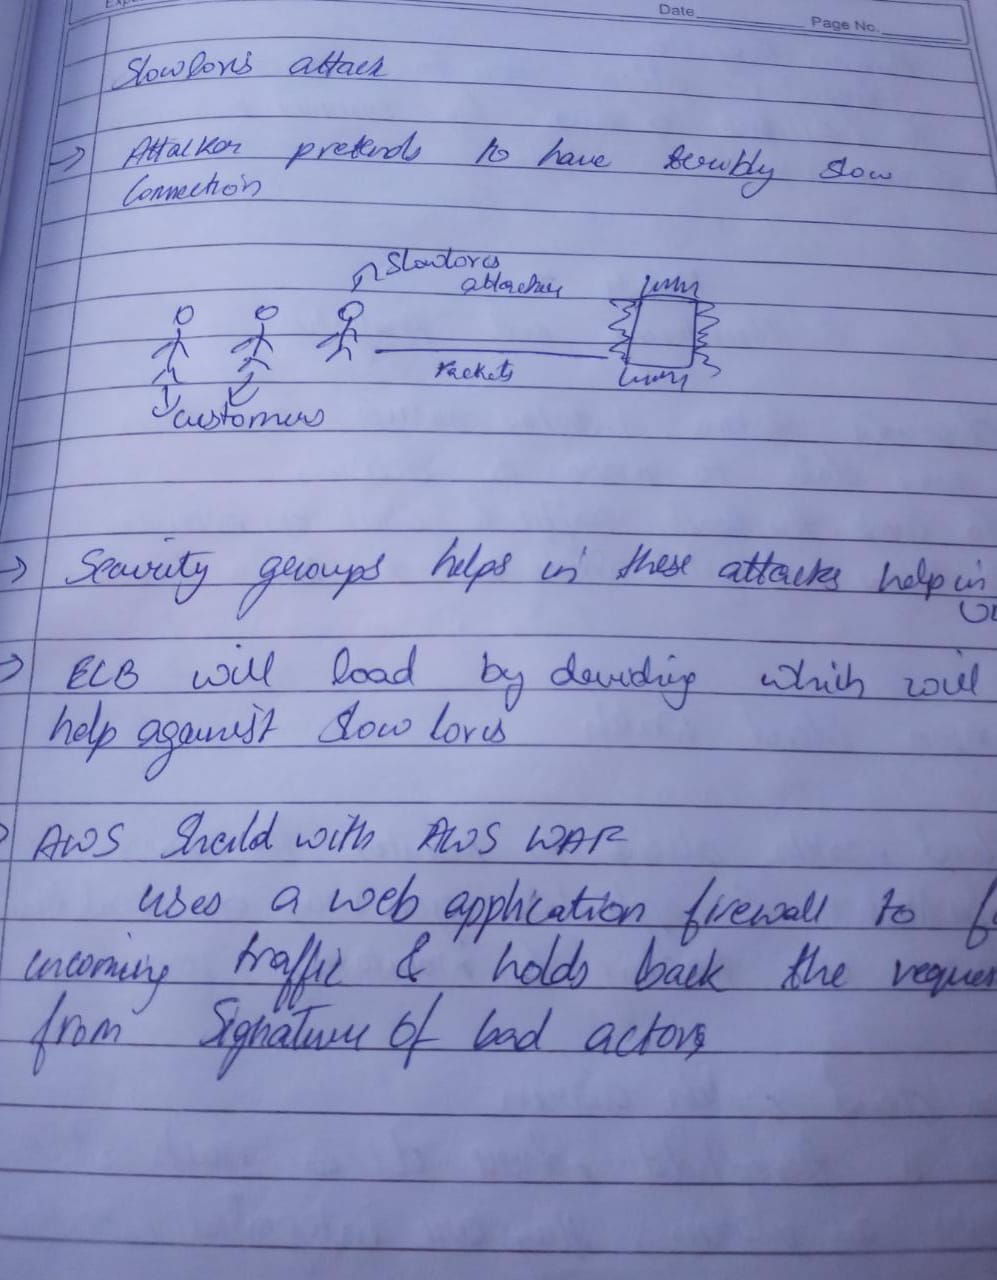 Date
Page No.
Slowloris attack
→ Attacker pretends to have terribly slow
Connection
Slowloris
attacker
Packets
Customers
→ Security groups helps in these attacks help in
→ ELB will load by deviding which will
help against Slow loris
AWS Sheild with AWS WAF
uses a web application firewall to
incoming traffic & holds back the reques
from Signature of bad actors